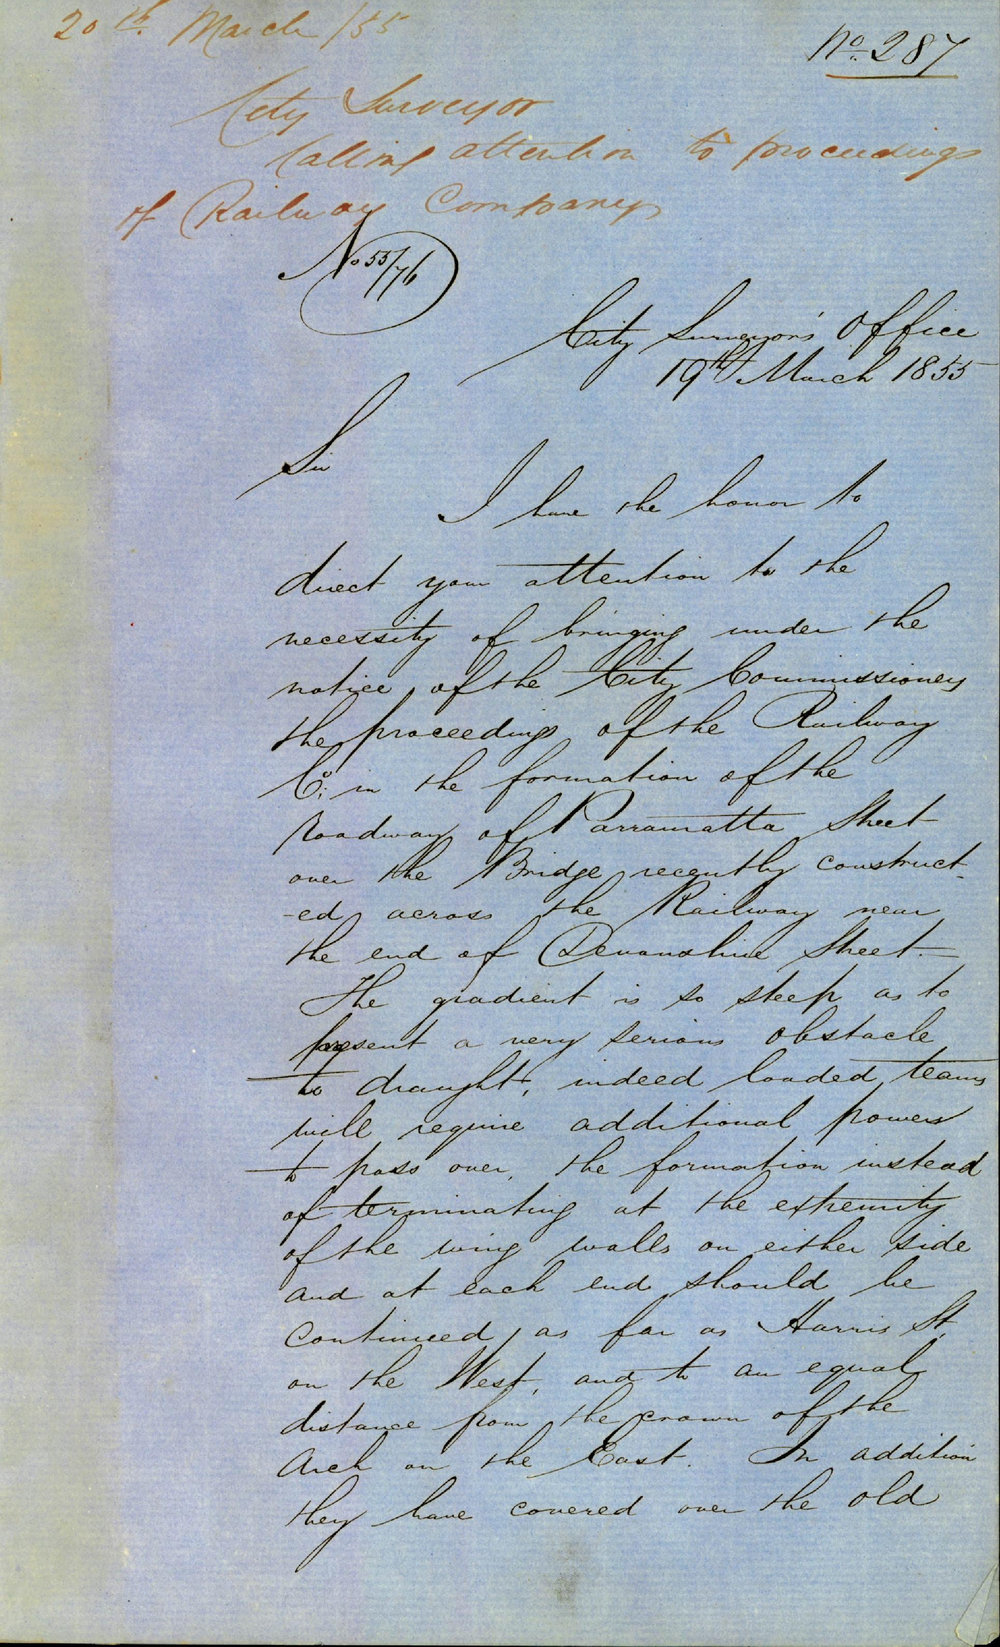 20th. March /55
No. 287
City Surveyor
Calling attention to proceedings
of Railway Company
No 55/76
City Surveyor's Office
19th March 1855
Sir
I have the honor to
direct your attention to the
necessity of bringing under the
notice of the City Commissioners
the proceedings of the Railway
Co: in the formation of the
Roadway of Parramatta Street
over the Bridge recently construct-
-ed across the Railway near
the end of Devonshire Street.—
The gradient is so steep as to
present a very serious obstacle
to draught, indeed loaded teams
will require additional powers
to pass over, the formation instead
of terminating at the extremity
of the wing walls on either side
and at each end should be
continued as far as Harris St.
on the West, and to an equal
distance from the crown of the
Arch on the East. In addition
they have covered over the old